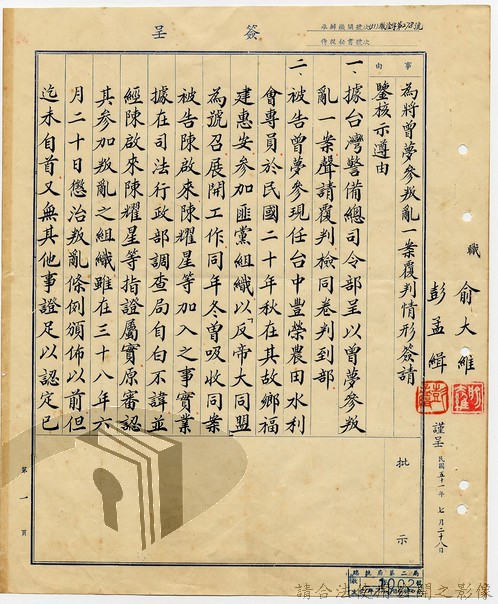 簽呈
事由
為將曾夢參叛亂一案覆判情形簽請
鑒核示遵由
一、據台灣警備總司令部呈以曾夢參叛
亂一案聲請覆判檢同卷判到部
二、被告曾夢參現任台中豐榮農田水利
會專員於民國二十年秋在其故鄉福
建惠安參加匪黨組織以「反帝大同盟」
為號召展開工作同年冬曾吸收同案
被告陳啟來陳耀星等加入之事實業
據在司法行政部調查局自白不諱並
經陳啟來陳耀星等指證屬實原審認
其參加叛亂之組織雖在三十八年六
月二十日懲治叛亂條例頒佈以前但
迄未自首又無其他事證足以認定已
職 俞大維
彭孟緝
謹呈 民國五十一年七月二十八日
批示
第一頁
請合法使用公開之影像